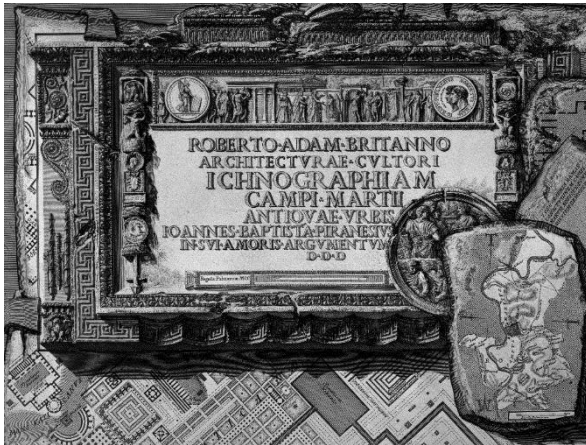 ROBERTO·ADAM·BRITANNO
ARCHITECTVRAE·CVLTORI
ICHNOGRAPHIAM
CAMPI·MARTII
ANTIQVAE·VRBIS
IOANNES·BAPTISTA·PIRANESIVS
IN·SVI·AMORIS·ARGVMENTVM
D·D·D
Regula Palmorum